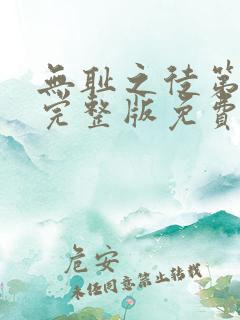 無耻之徒第
完整版免費
危安
未经同意禁止转载